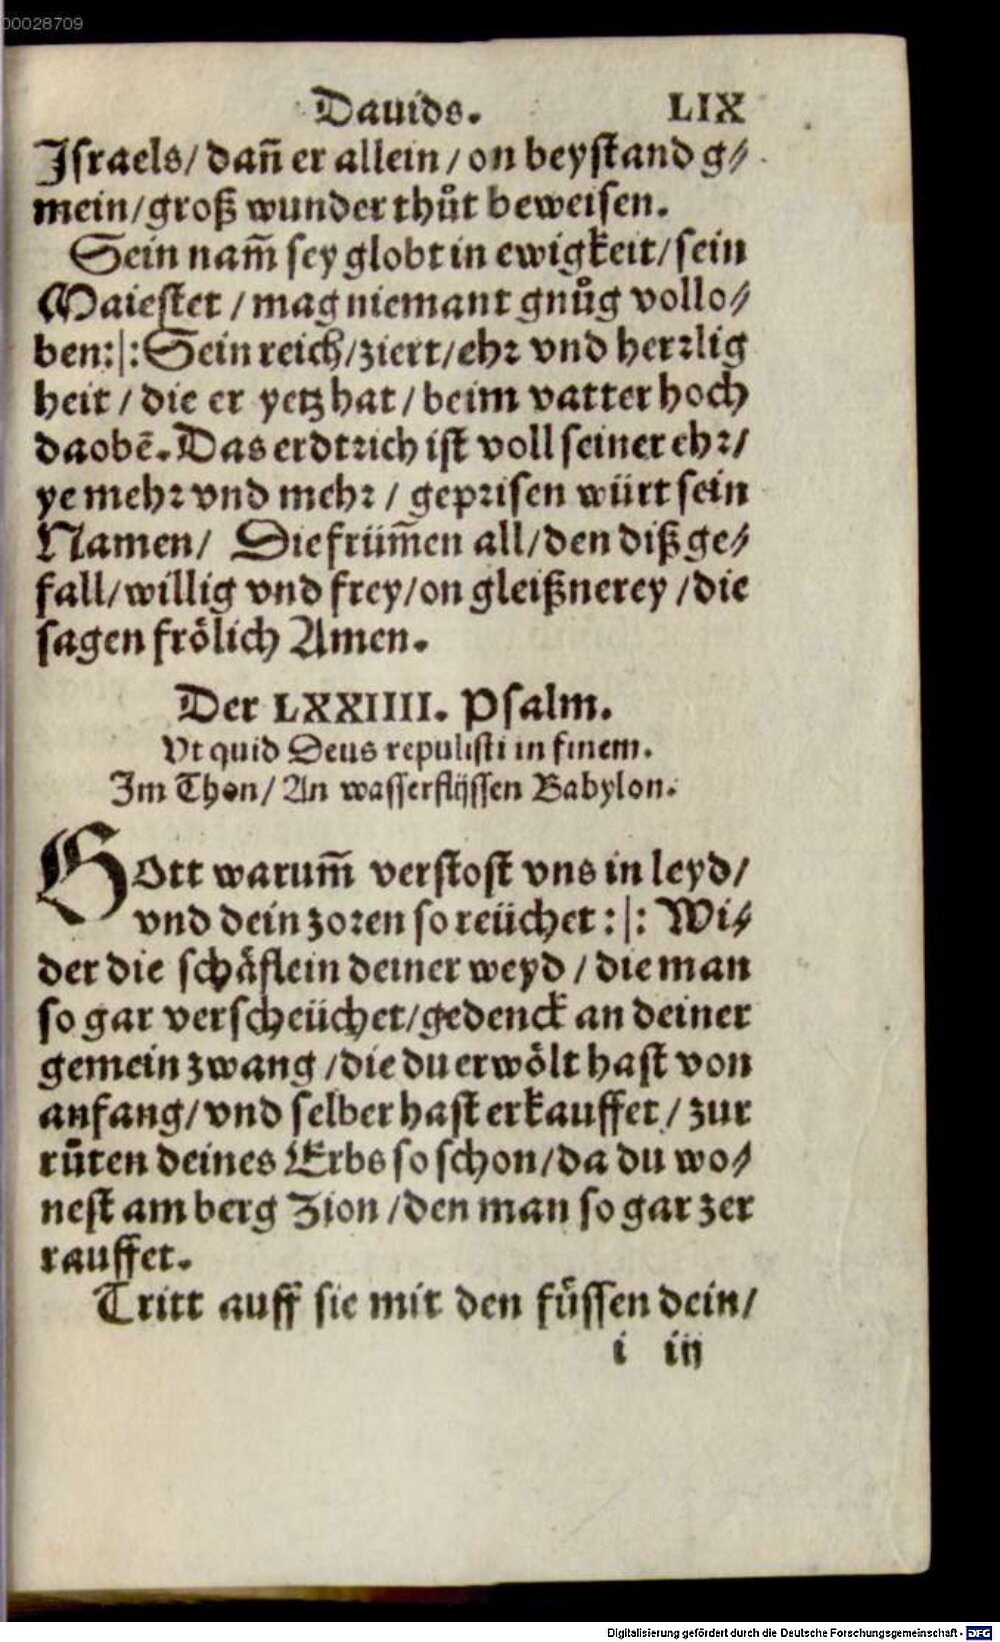 00028709
Dauids. LIX
Jſraels/ dañ er allein/ on beyſtand g⸗
mein/ groß wunder thůt beweiſen.
Sein nam̄ ſey globt in ewigkeit/ ſein
Maieſtet / mag niemant gnůg vollo⸗
ben:|:Sein reich/ ziert/ ehꝛ vnd herꝛlig
heit / die er yetz hat / beim vatter hoch
daobē. Das erdtꝛich iſt voll ſeiner ehꝛ/
ye mehꝛ vnd mehꝛ / gepꝛiſen würt ſein
Namen/ Die früm̄en all/ den diß ge⸗
fall/ willig vnd frey/ on gleißnerey / die
ſagen frölich Amen.
Der LXXIIII. Pſalm.
Vt quid Deus repuliſti in finem.
Im Thon/ An waſſerflüſſen Babylon.
GOtt warum̄ verſtoſt vns in leyd/
vnd dein zoꝛen ſo reüchet :|: Wi⸗
der die ſchäflein deiner weyd / die man
ſo gar verſcheüchet/ gedenck an deiner
gemein zwang / die du erwölt haſt von
anfang/ vnd ſelber haſt erkauffet / zur
růten deines Erbs ſo ſchon/ da du wo⸗
neſt am berg Zion / den man ſo gar zer
rauffet.
Tritt auff ſie mit den füſſen dein/
i iij
Digitalisierung gefördert durch die Deutsche Forschungsgemeinschaft - DFG